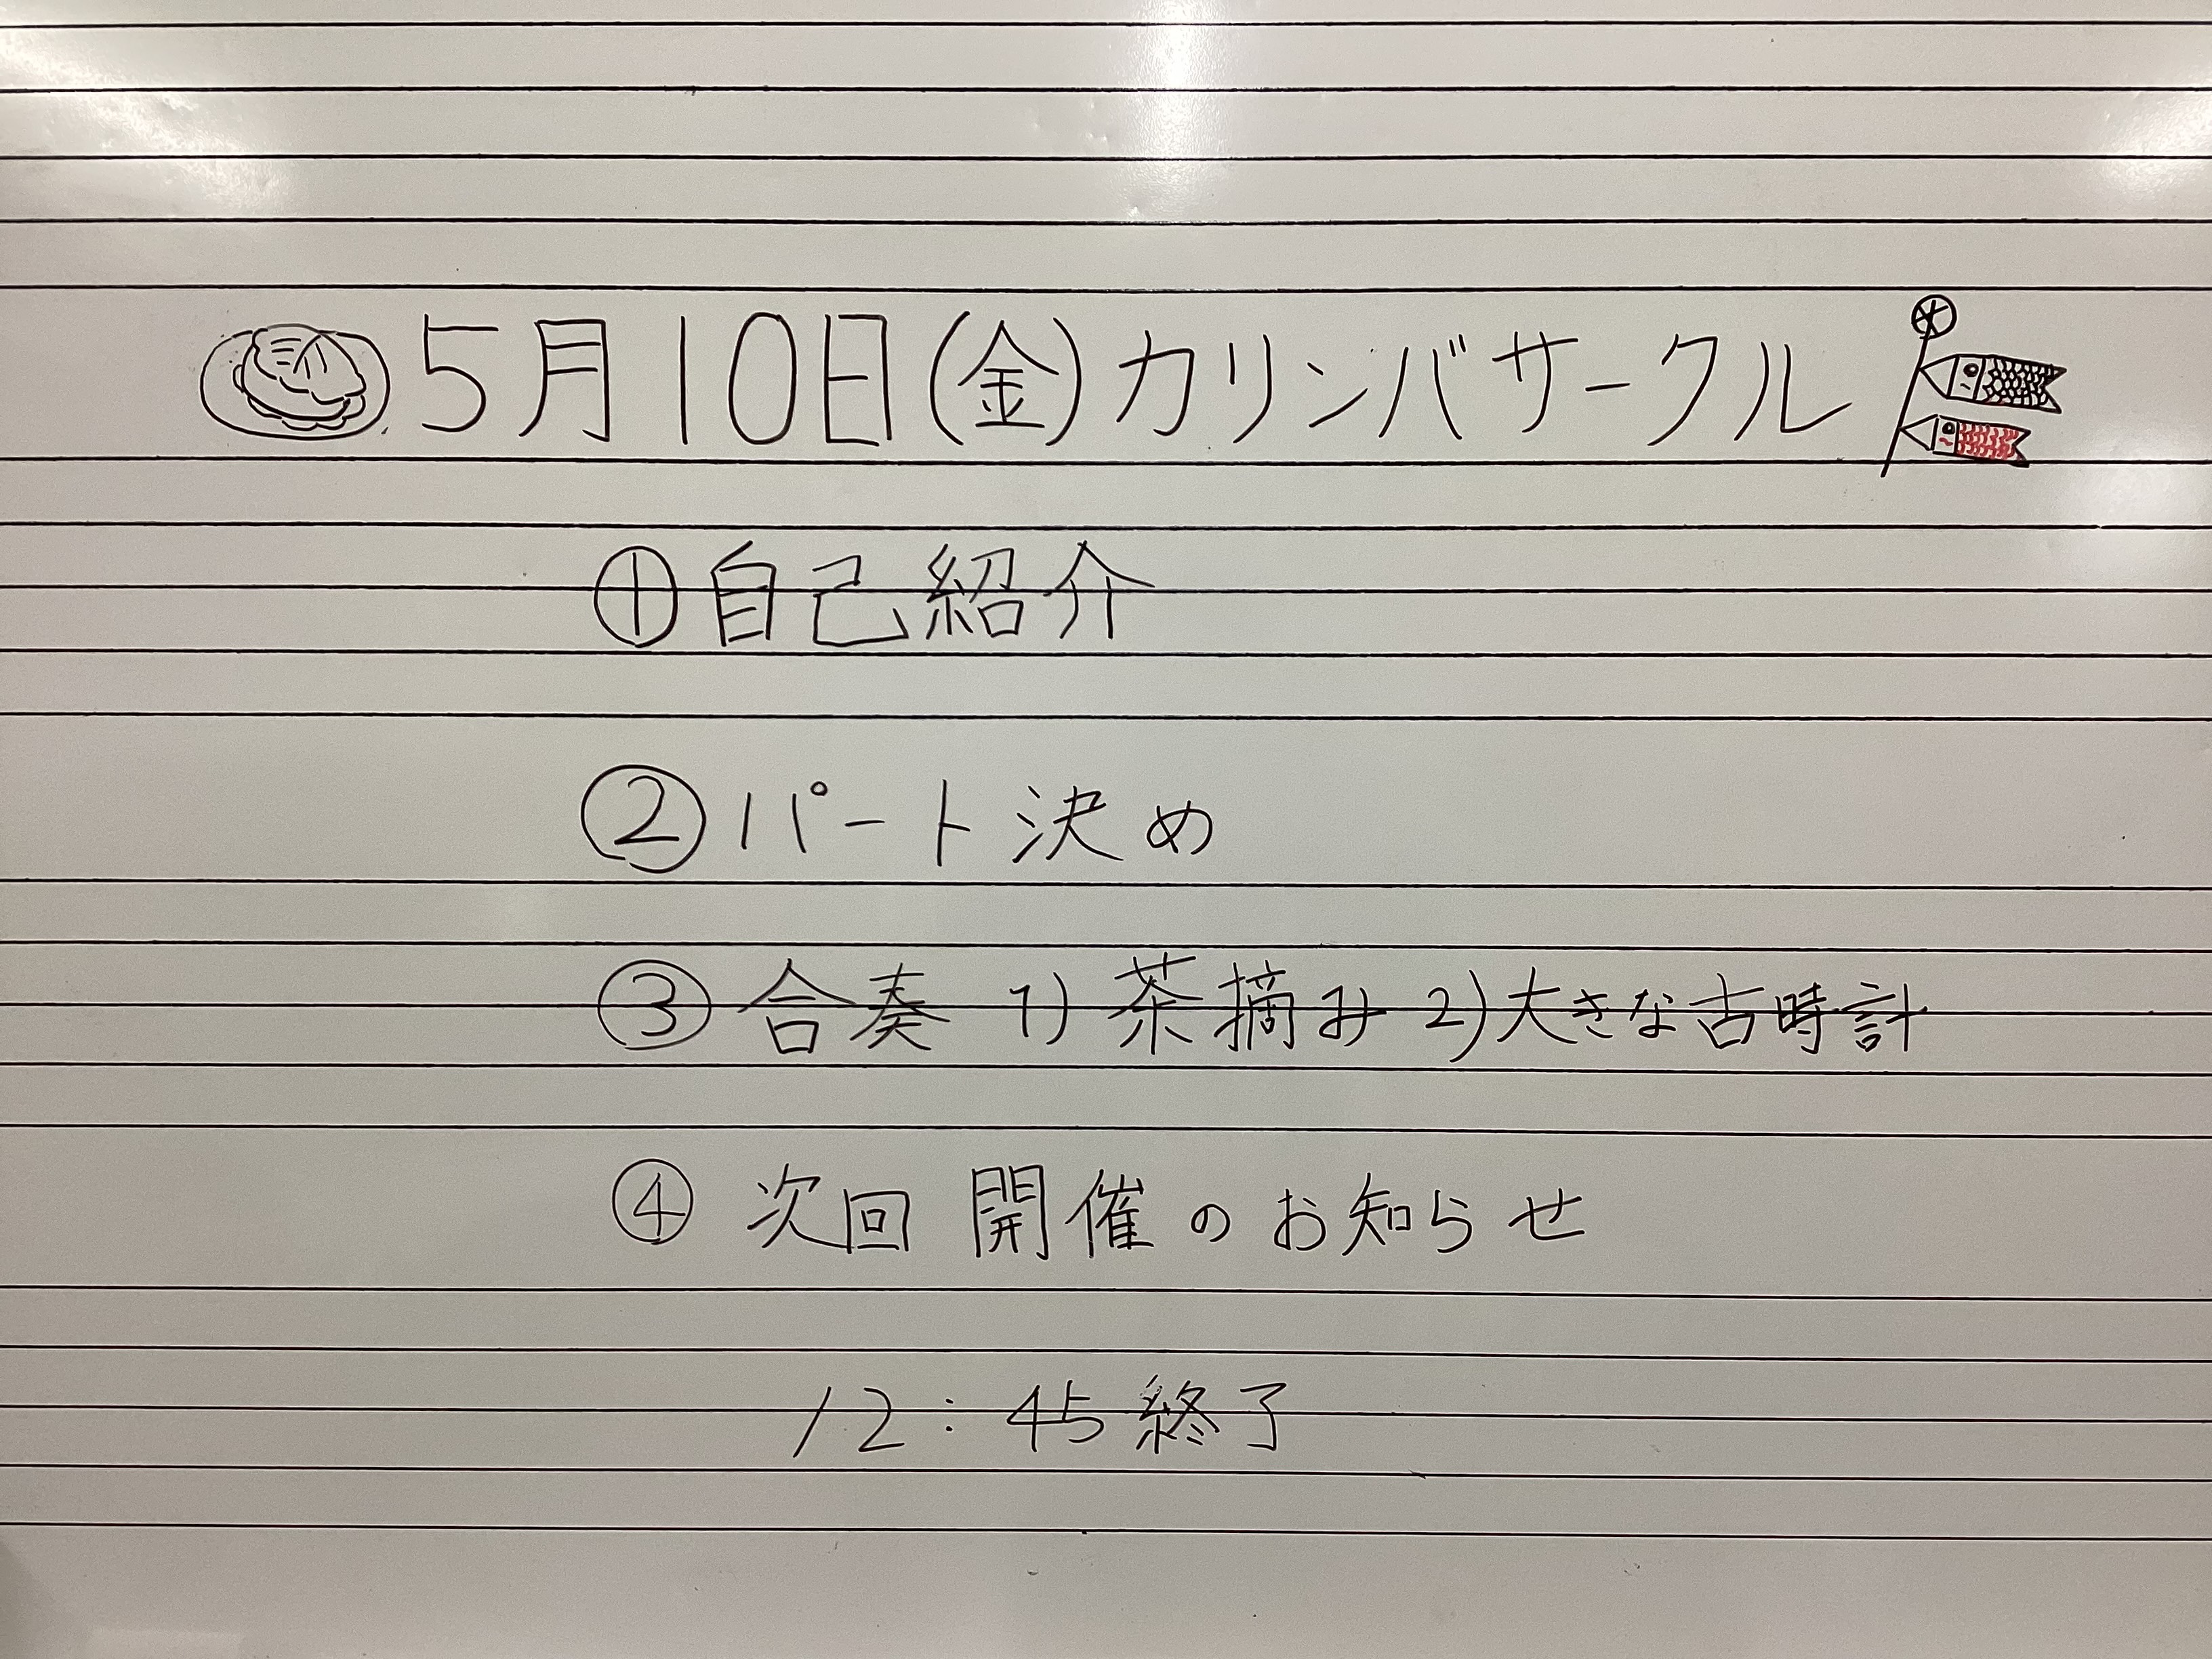 5月10日(金)カリンバサークル
①自己紹介
②パート決め
③合奏 1)茶摘み 2)大きな古時計
④次回開催のお知らせ
12:45終了